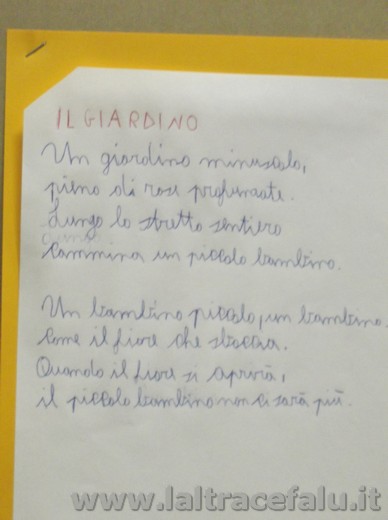 IL GIARDINO
Un giardino minuscolo,
pieno di rose profumate.
Lungo lo stretto sentiero
cammina un piccolo bambino.
Un bambino piccolo, un bambino
come il fiore che sboccia.
Quando il fiore si aprirà,
il piccolo bambino non ci sarà più.
www.laltracefalu.it